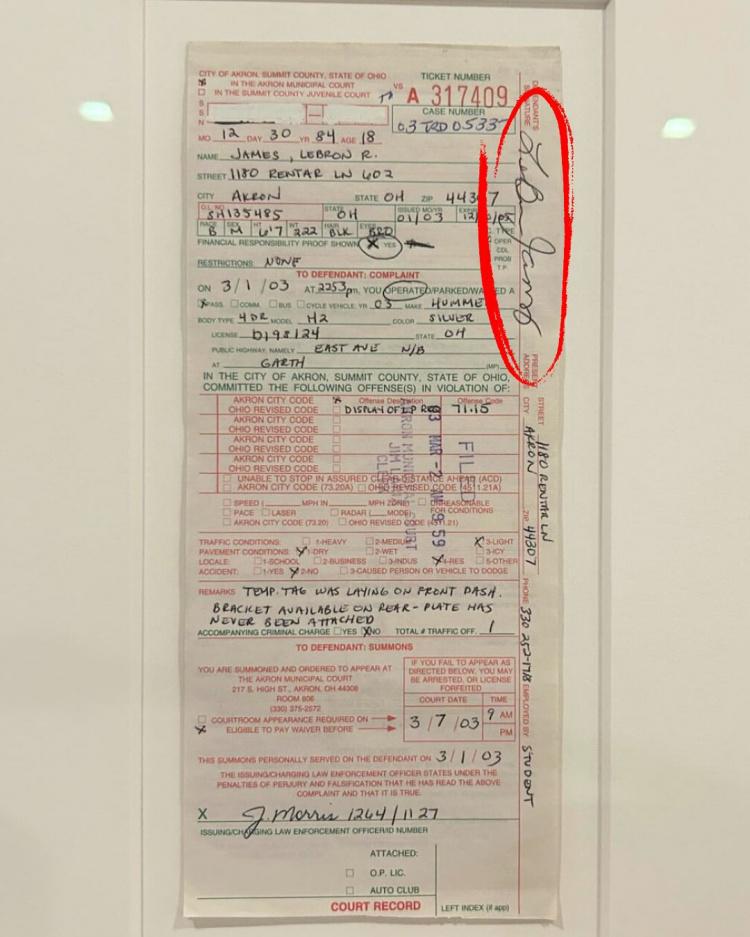 CITY OF AKRON, SUMMIT COUNTY, STATE OF OHIO
IN THE AKRON MUNICIPAL COURT
IN THE SUMMIT COUNTY JUVENILE COURT
VS
TICKET NUMBER
A 317409
CASE NUMBER
03 TRD 05335
S
S
N
MO 12 DAY 30 YR 84 AGE 18
NAME JAMES, LEBRON R.
STREET 1180 RENTAR LN 602
CITY AKRON STATE OH ZIP 44307
O.L. NO. SH135485 STATE OH ISSUED MO/YR 01/03
RACE B SEX M HT 6'7 WT 222 HAIR BLK EYES BRO
C. TYPE
OPER
CDL
PROB
T.P.
FINANCIAL RESPONSIBILITY PROOF SHOWN X YES
RESTRICTIONS: NONE
TO DEFENDANT: COMPLAINT
ON 3/1/03 AT 2253 pm. YOU OPERATED/PARKED/WALKED A
PASS. COMM. BUS CYCLE VEHICLE: YR 03 MAKE HUMME
BODY TYPE 4DR MODEL H2 COLOR SILVER
LICENSE D198124 STATE OH
PUBLIC HIGHWAY, NAMELY EAST AVE N/B
AT GARTH (MP)
IN THE CITY OF AKRON, SUMMIT COUNTY, STATE OF OHIO,
COMMITTED THE FOLLOWING OFFENSE(S) IN VIOLATION OF:
AKRON CITY CODE X Offense Description Offense Code
OHIO REVISED CODE DISPLAY OF LP REQ 71.15
AKRON CITY CODE
OHIO REVISED CODE
AKRON CITY CODE
OHIO REVISED CODE
AKRON CITY CODE
OHIO REVISED CODE
UNABLE TO STOP IN ASSURED CLEAR DISTANCE AHEAD (ACD)
AKRON CITY CODE (73.20A) OHIO REVISED CODE (4511.21A)
FILED
03 MAR -2 AM 9 59
AKRON MUNICIPAL COURT
CLERK
SPEED ( MPH IN MPH ZONE) UNREASONABLE
PACE LASER RADAR ( MODE) FOR CONDITIONS
AKRON CITY CODE (73.20) OHIO REVISED CODE (4511.21)
TRAFFIC CONDITIONS: 1-HEAVY 2-MEDIUM X 3-LIGHT
PAVEMENT CONDITIONS: X 1-DRY 2-WET 3-ICY
LOCALE: 1-SCHOOL 2-BUSINESS 3-INDUS X 4-RES 5-OTHER
ACCIDENT: 1-YES X 2-NO 3-CAUSED PERSON OR VEHICLE TO DODGE
REMARKS TEMP. TAG WAS LAYING ON FRONT DASH.
BRACKET AVAILABLE ON REAR-PLATE HAS
NEVER BEEN ATTACHED
ACCOMPANYING CRIMINAL CHARGE YES X NO TOTAL # TRAFFIC OFF. 1
TO DEFENDANT: SUMMONS
YOU ARE SUMMONED AND ORDERED TO APPEAR AT
THE AKRON MUNICIPAL COURT
217 S. HIGH ST., AKRON, OH 44308
ROOM 806
(330) 375-2572
COURTROOM APPEARANCE REQUIRED ON
X ELIGIBLE TO PAY WAIVER BEFORE
IF YOU FAIL TO APPEAR AS
DIRECTED BELOW, YOU MAY
BE ARRESTED, OR LICENSE
FORFEITED
COURT DATE TIME
3/7/03 9 AM
PM
THIS SUMMONS PERSONALLY SERVED ON THE DEFENDANT ON 3/1/03
THE ISSUING/CHARGING LAW ENFORCEMENT OFFICER STATES UNDER THE
PENALTIES OF PERJURY AND FALSIFICATION THAT HE HAS READ THE ABOVE
COMPLAINT AND THAT IT IS TRUE.
X J. Morris 1264/1127
ISSUING/CHARGING LAW ENFORCEMENT OFFICER/ID NUMBER
ATTACHED:
O.P. LIC.
AUTO CLUB
COURT RECORD
LEFT INDEX (if app)
DEFENDANT'S
SIGNATURE LeBron James
PRESENT
ADDRESS
STREET 1180 RENTAR LN
CITY AKRON ZIP 44307 PHONE 330 252-1768 EMPLOYED BY STUDENT